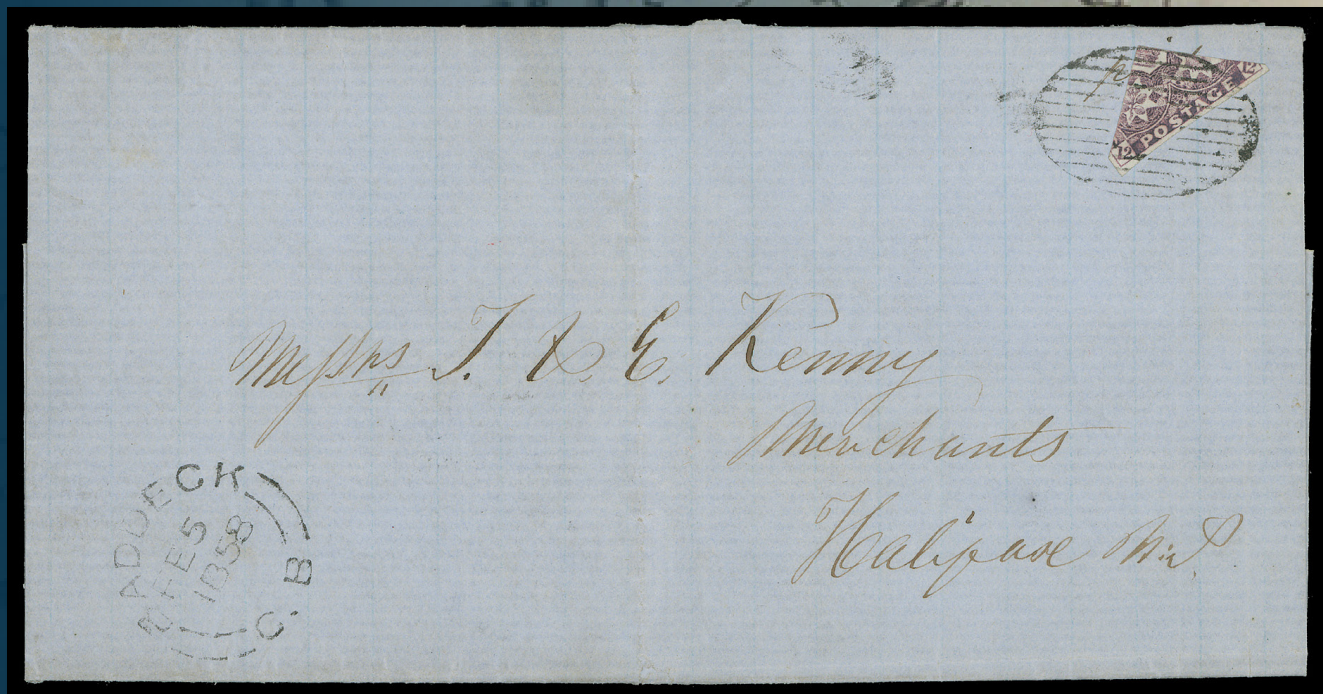 12 POSTAGE 12
Messrs T. & E. Kenny
Merchants
Halifax N.S.
BADDECK
FE 5
1858
C. B